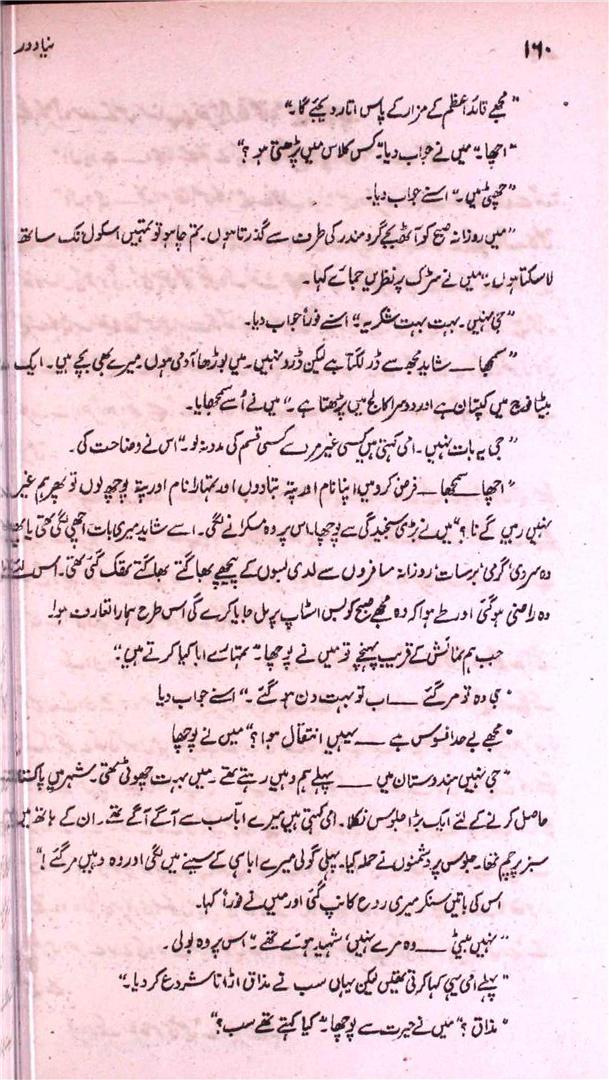 ۱۶۰
نیا دور
" مجھے قائد اعظم کے مزار کے پاس اتار دیجئے گا۔"
" اچھا۔" میں نے جواب دیا۔" کس کلاس میں پڑھتی ہو ؟"
" چھٹی میں۔" اسنے جواب دیا۔
" میں روزانہ صبح کو آٹھ بجے گرو مندر کی طرف سے گذرتا ہوں۔ تم چاہو تو تمہیں اسکول تک ساتھ
لا سکتا ہوں۔" میں نے سڑک پر نظریں جمائے کہا۔
" جی نہیں۔ بہت بہت شکریہ۔" اسنے فوراً جواب دیا۔
" سمجھا ــــ شاید مجھ سے ڈر لگتا ہے لیکن ڈرو نہیں۔ میں بوڑھا آدمی ہوں۔ میرے بھی بچے ہیں۔ ایک
بیٹا فوج میں کپتان ہے اور دوسرا کالج میں پڑھتا ہے۔" میں نے اُسے سمجھایا۔
" جی یہ بات نہیں۔ امی کہتی ہیں کسی غیر مرد سے کسی قسم کی مدد نہ لو۔" اس نے وضاحت کی۔
" اچھا سمجھا ــــ فرض کرو میں اپنا نام اور پتہ بتا دوں اور تمہارا نام اور پتہ پوچھ لوں تو پھر ہم غیر
نہیں رہیں گے نا ؟" میں نے بڑی سنجیدگی سے پوچھا۔ اس پر وہ مسکرانے لگی۔ اسے شاید میری بات اچھی لگی تھی یا
وہ سردی، گرمی، برسات، روزانہ مسافروں سے لدی بسوں کے پیچھے بھاگتے بھاگتے تھک گئی تھی۔ اس
وہ راضی ہو گئی اور طے ہوا کہ وہ مجھے صبح کو بس اسٹاپ پر مل جایا کرے گی اس طرح ہمارا تعارف ہوا۔
جب ہم نمائش کے قریب پہنچے تو میں نے پوچھا۔" تمہارے ابا کیا کرتے ہیں۔"
" جی وہ تو مر گئے ــــ اب تو بہت دن ہو گئے۔" اسنے جواب دیا
" مجھے بے حد افسوس ہے ــــ یہیں انتقال ہوا ؟" میں نے پوچھا
" جی نہیں ہندوستان میں ــــ پہلے ہم وہیں رہتے تھے۔ میں بہت چھوٹی تھی۔ شہر میں پاکستان
حاصل کرنے کے لئے ایک بڑا جلوس نکلا۔ امی کہتی ہیں میرے ابا سب سے آگے آگے تھے۔ ان کے ہاتھ میں
سبز پرچم تھا۔ جلوس پر دشمنوں نے حملہ کیا۔ پہلی گولی میرے ابا ہی کے سینے میں لگی اور وہ وہیں مر گئے !"
اس کی باتیں سنکر میری روح کانپ گئی اور میں نے فوراً کہا۔
" نہیں بیٹی ــــ وہ مرے نہیں، شہید ہوئے تھے۔" اس پر وہ بولی۔
" پہلے امی یہی کہا کرتی تھیں لیکن یہاں سب نے مذاق اڑانا شروع کر دیا۔"
" مذاق ؟" میں نے حیرت سے پوچھا۔" کیا کہتے تھے سب ؟"